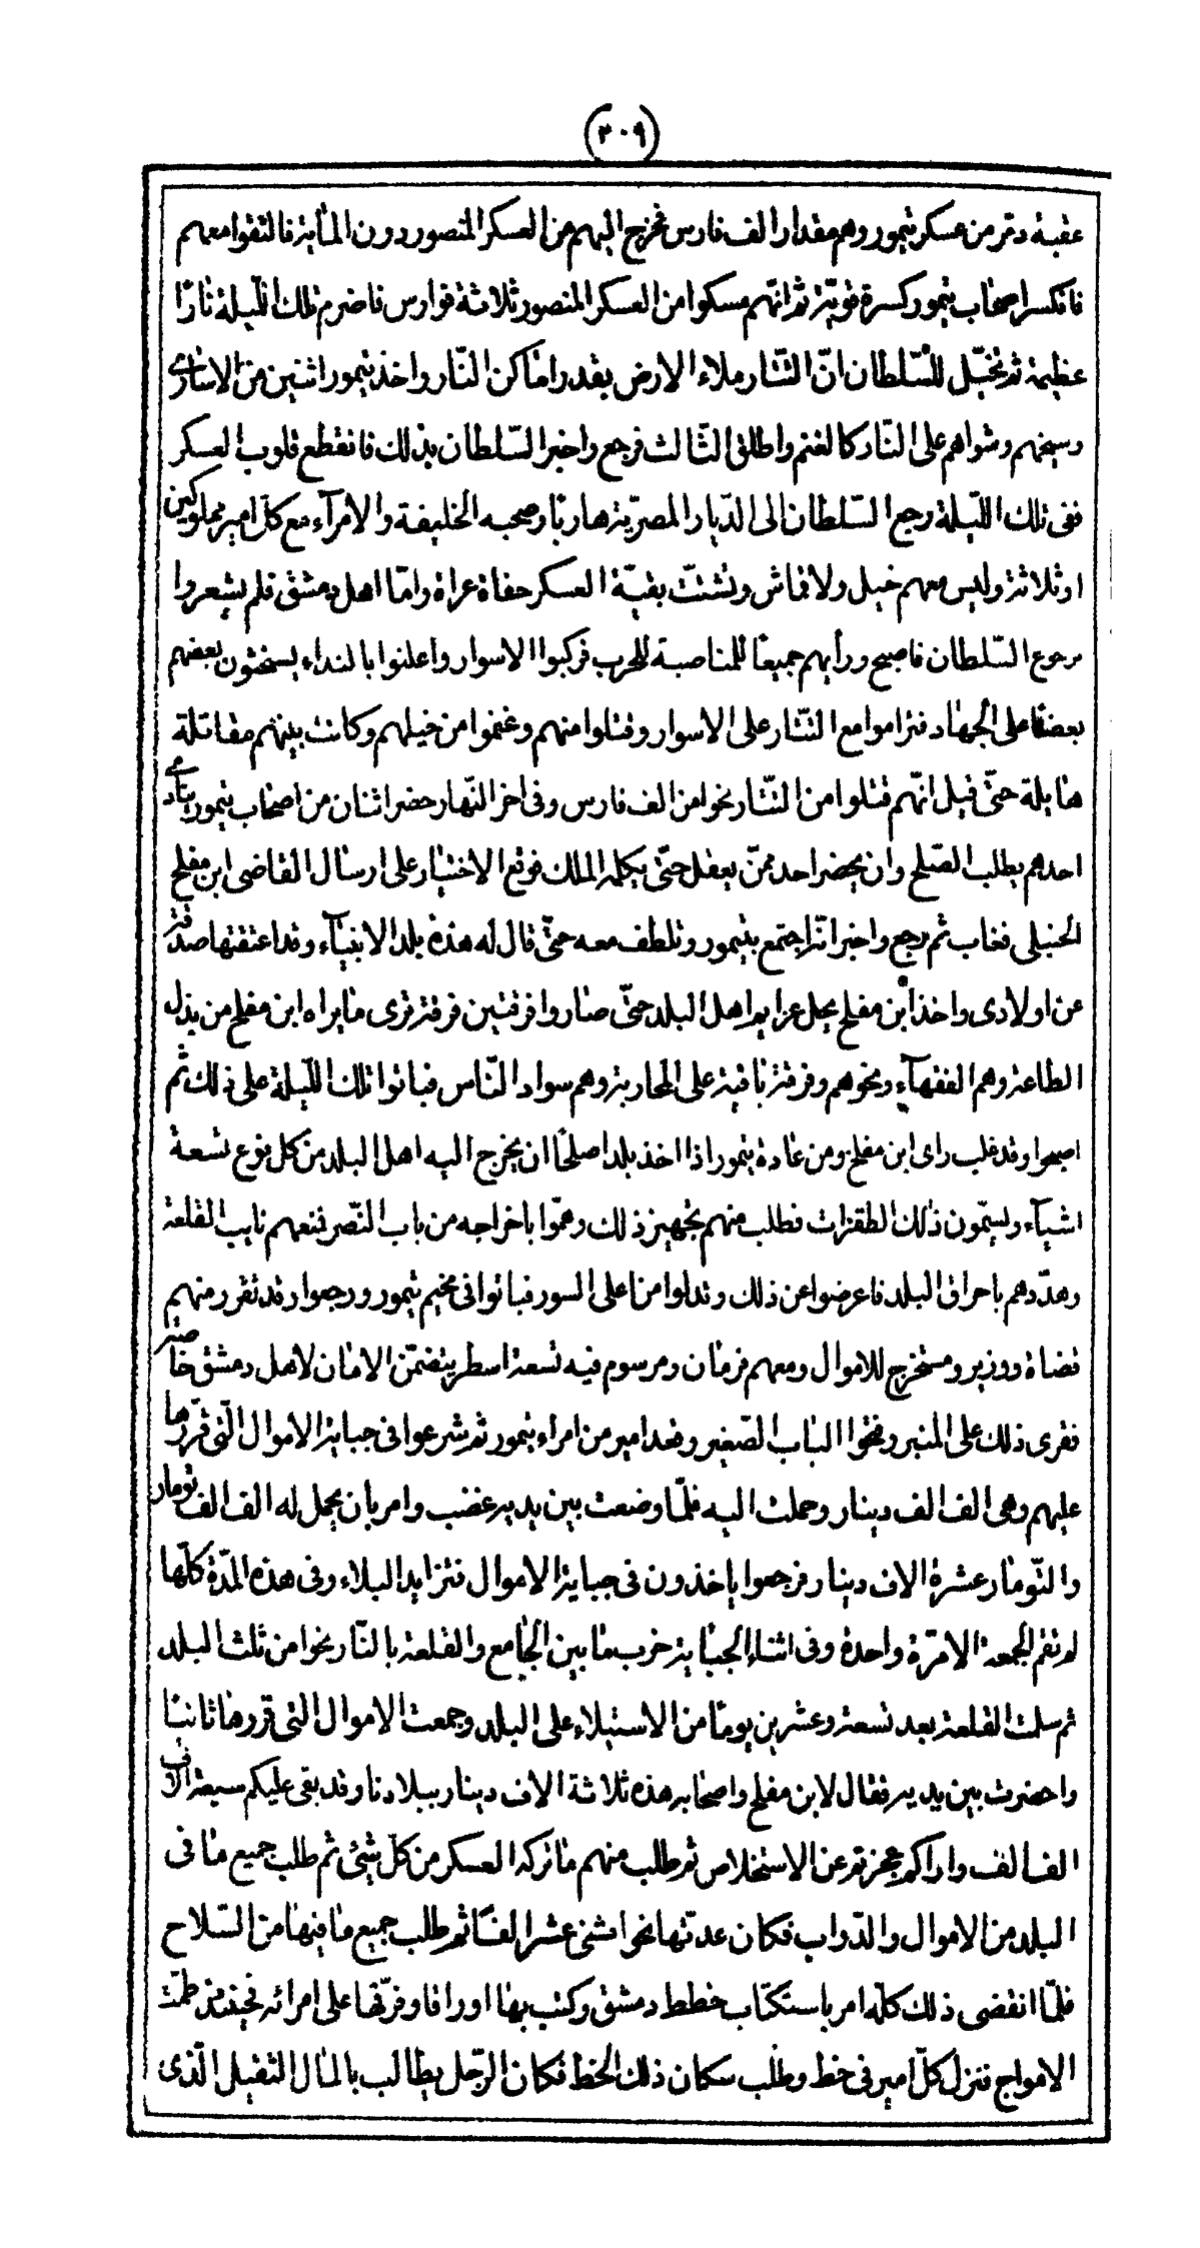 (٣٠٩)
عقبة دمر من عسكر تيمور وهم مقدار الف فارس فخرج اليهم من العسكر المنصور دون المأية فالتقوا معهم
فانكسر اصحاب تيمور كسرة قويّة ثمّ انّهم مسكوا من العسكر المنصور ثلاثة فوارس فاضرم تلك اللّيلة نارًا
عظيمة ثم تخيّل للسّلطان انّ التّتار ملاء الارض بقدر اماكن النّار واخذ تيمور اثنين من الاسارى
وسيخهم وشواهم على النّار كالغنم واطلق الثّالث فرجع واخبر السّلطان بذلك فانقطع قلوب العسكر
ففى تلك اللّيلة رجع السّلطان الى الدّيار المصريّة هاربًا وصحبه الخليفة والامرآء مع كلّ امير مملوكين
او ثلاثة وليس معهم خيل ولا قماش وتشتّت بقيّة العسكر حفاة عراة وامّا اهل دمشق فلم يشعروا
برجوع السّلطان فاصبح ورأيهم جميعًا للمناصبة للحرب فركبوا الاسوار واعلنوا بالنداء يستحثون بعضهم
بعضًا على الجهاد فتراموا مع التّتار على الاسوار وقتلوا منهم وغنموا من خيلهم وكانت بينهم مقاتلة
هايلة حتّى قيل انّهم قتلوا من التّتار نحوا من الف فارس وفى اخر النّهار حضر اثنان من اصحاب تيمور ينادى
احدهم بطلب الصّلح وان يحضر احد ممّن يعقل حتّى يكلمه الملك فوقع الاختيار على ارسال القاضى ابن مفلح
الحنبلى فغاب ثم رجع واخبر انّه اجتمع بتيمور وتلطف معه حتّى قال له هذه بلد الانبيآء وقد اعتقتها صدقة
عن اولادى واخذ ابن مفلح يحل عزايم اهل البلد حتّى صاروا فرقتين فرقة ترى ما يراه ابن مفلح من بذل
الطاعة وهم الفقهآء ونحوهم وفرقة باقية على المحاربة وهم سواد النّاس فباتوا تلك اللّيلة على ذلك ثم
اصبحوا وقد غلب راى ابن مفلح ومن عادة تيمور اذا اخذ بلدا صلحًا ان يخرج اليه اهل البلد من كل نوع تسعة
اشيآء ويسمّون ذلك الطقزات فطلب منهم تجهيز ذلك وهمّوا باخراجه من باب النّصر فمنعهم نايب القلعة
وهدّدهم باحراق البلد فاعرضوا عن ذلك وتدلوا من اعلى السور فباتوا فى مخيم تيمور ورجعوا وقد تقرر منهم
قضاة ووزير ومستخرج للاموال ومعهم فرمان ومرسوم فيه تسعة اسطر يتضمّن الامان لاهل دمشق خاصّة
فقرى ذلك على المنبر وفتحوا الباب الصّغير وقعد امير من امراء تيمور ثم شرعوا فى جباية الاموال الّتى قرّرها
عليهم وهى الف الف دينار وحملت اليه فلمّا وضعت بين يديه غضب وامر بان يحمل له الف الف تومار
والتّومار عشرة الاف دينار فرجعوا ياخذون فى جباية الاموال فتزايد البلاء وفى هذه المدّة كلّها
لم تقم الجمعة الا مرّة واحدة وفى اثناء الجباية خرب ما بين الجامع والقلعة بالنّار نحوا من ثلث البلد
ثم سلمت القلعة بعد تسعة وعشرين يومًا من الاستيلاء على البلد وجمعت الاموال التى قررها ثانيًا
واحضرت بين يديه فقال لابن مفلح واصحابه هذه ثلاثة الاف دينار ببلادنا وقد بقى عليكم سبعة الاف
الف الف واراكم عجزتم عن الاستخلاص ثم طلب منهم ما تركه العسكر من كلّ شيئ ثم طلب جميع ما فى
البلد من الاموال والدّواب فكان عدتها نحوا مثنى عشر الفًا ثم طلب جميع ما فيها من السّلاح
فلمّا انقضى ذلك كلّه امر باستكتاب خطط دمشق وكتب بها اوراقا وفرّقها على امرائه فحينئذ طمت
الامواج فنزل كلّ امير فى خط وطلب سكان ذلك الخط فكان الرّجل يطالب بالمال الثقيل الّذى